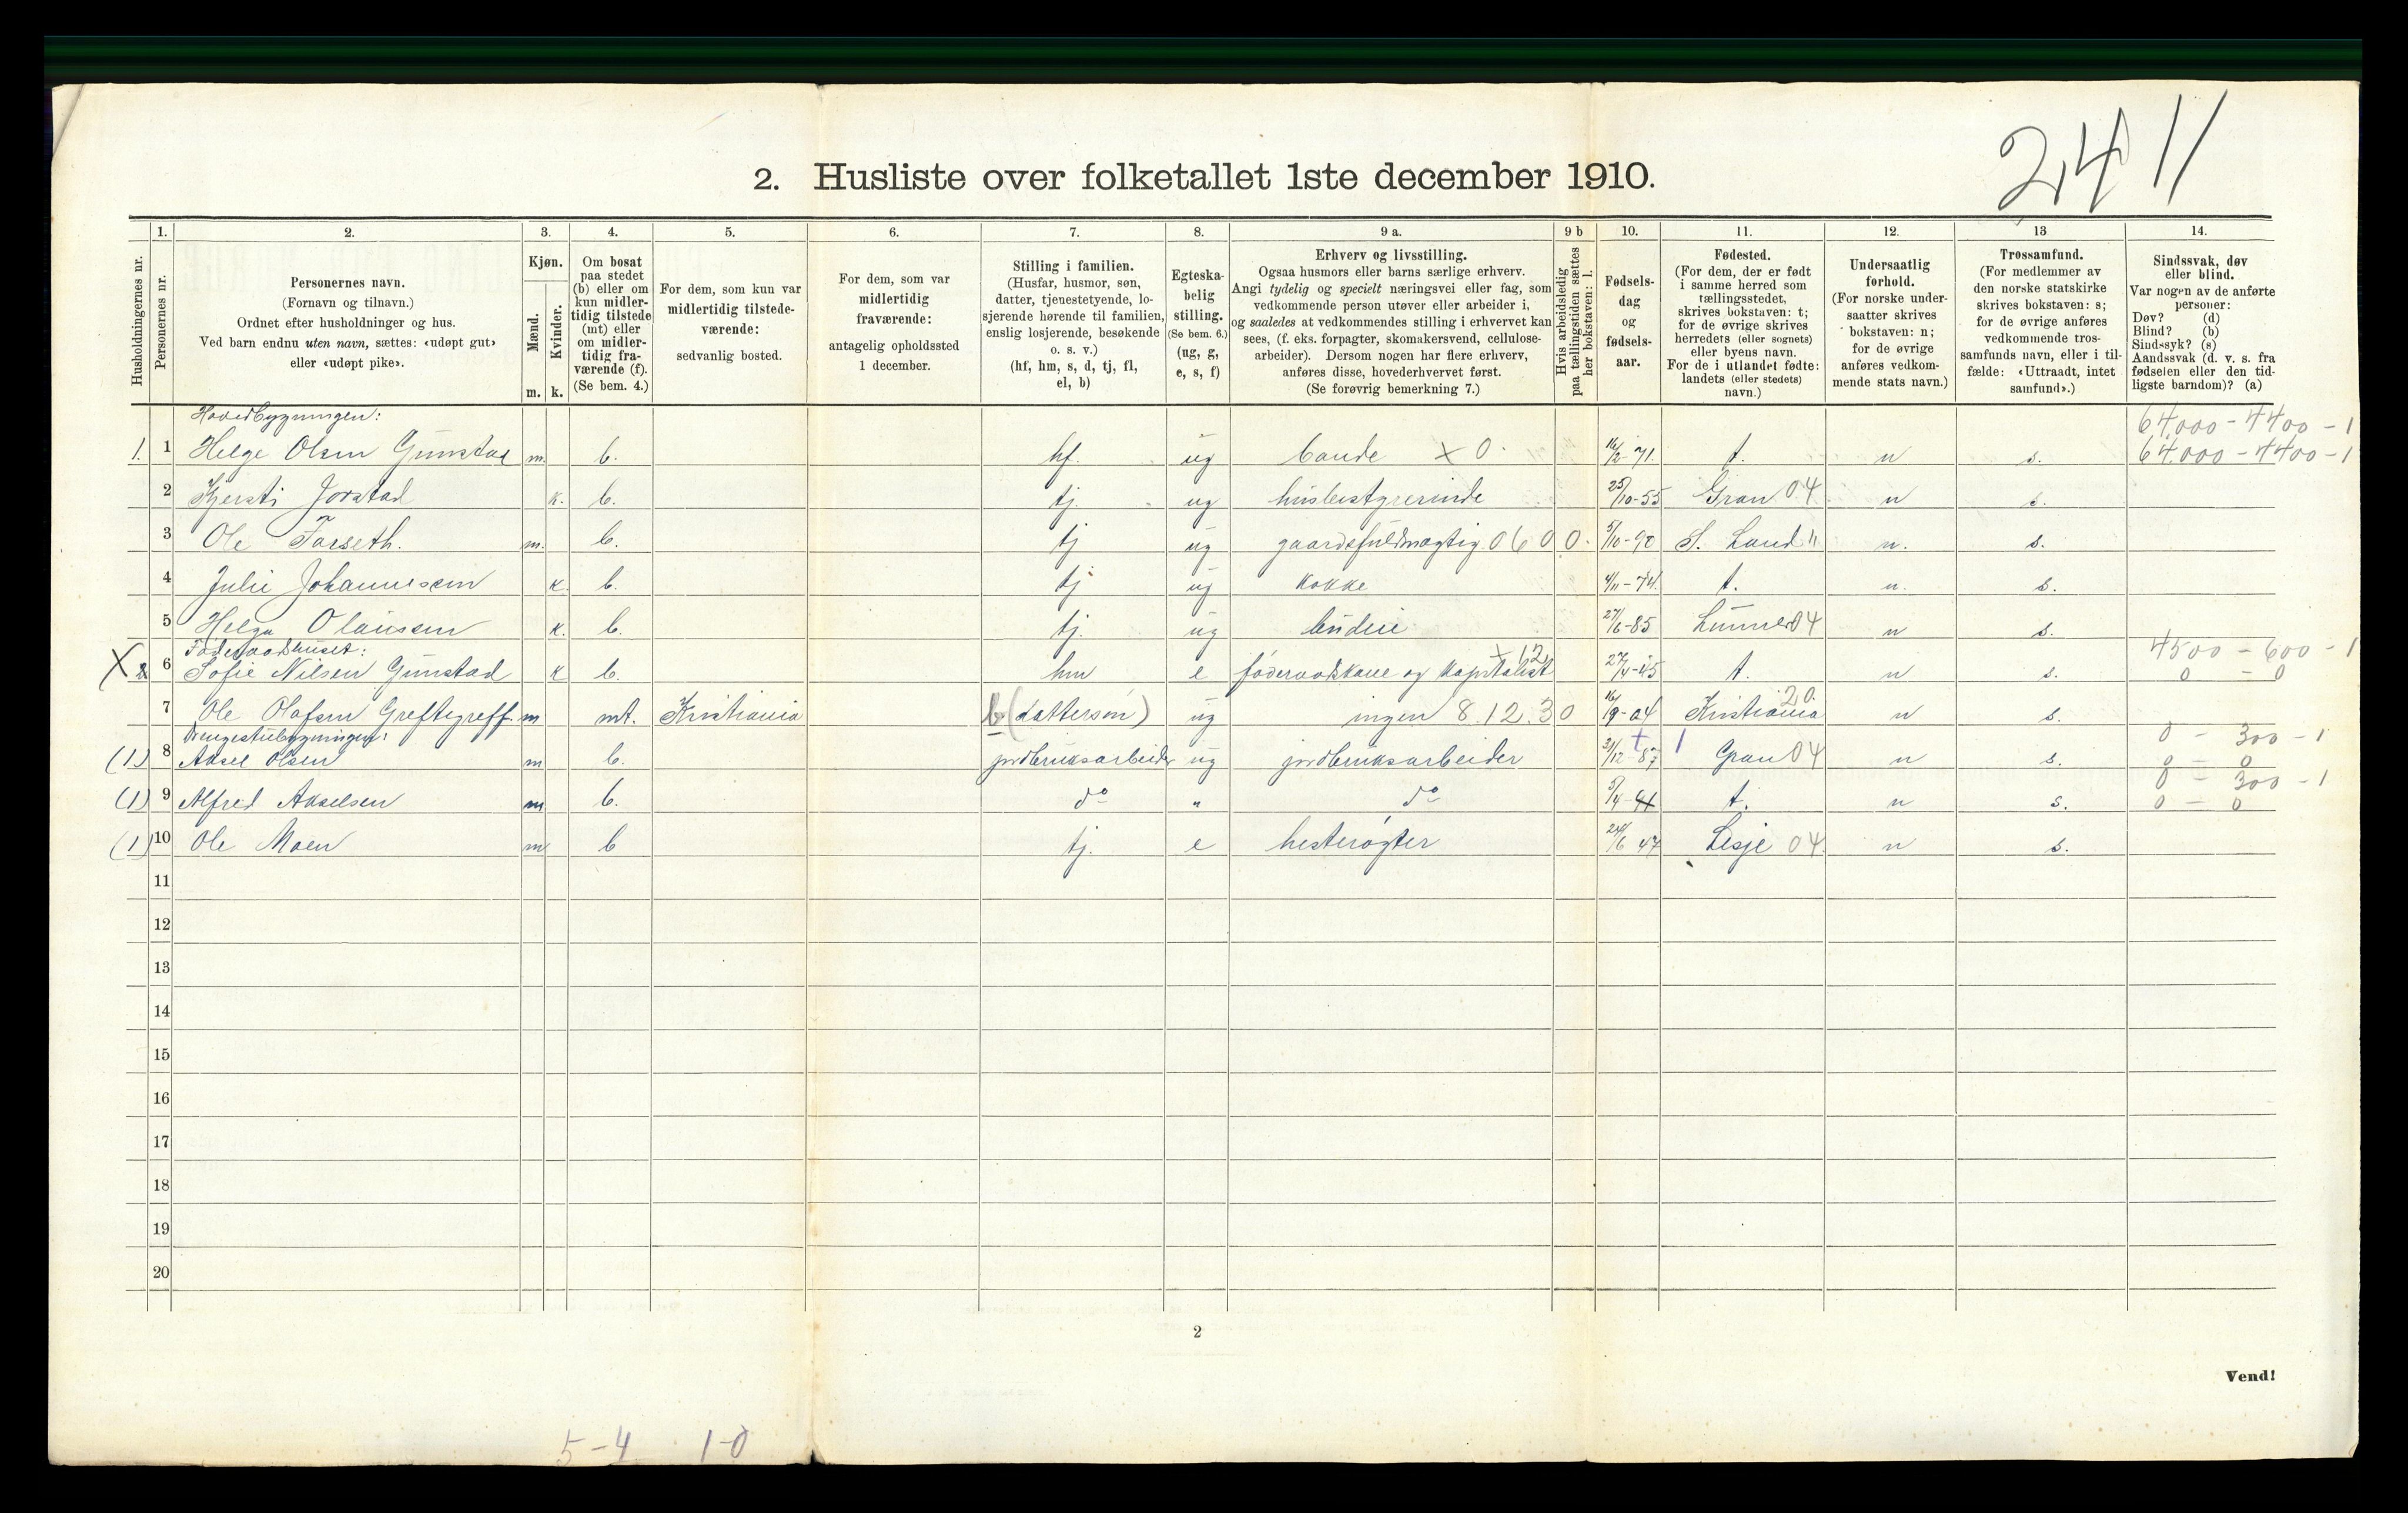 24 11
2. Husliste over folketallet 1ste december 1910.
Husholdningernes nr.
1. Personernes nr.
2. Personernes navn. (Fornavn og tilnavn.) Ordnet efter husholdninger og hus. Ved barn endnu uten navn, sættes: «udøpt gut» eller «udøpt pike».
3. Kjøn. Mænd. m. Kvinder. k.
4. Om bosat paa stedet (b) eller om kun midlertidig tilstede (mt) eller om midlertidig fraværende (f). (Se bem. 4.)
5. For dem, som kun var midlertidig tilstedeværende: sedvanlig bosted.
6. For dem, som var midlertidig fraværende: antagelig opholdssted 1 december.
7. Stilling i familien. (Husfar, husmor, søn, datter, tjenestetyende, losjerende hørende til familien, enslig losjerende, besøkende o. s. v.) (hf, hm, s, d, tj, fl, el, b)
8. Egteskabelig stilling. (Se bem. 6.) (ug, g, e, s, f)
9 a. Erhverv og livsstilling. Ogsaa husmors eller barns særlige erhverv. Angi tydelig og specielt næringsvei eller fag, som vedkommende person utøver eller arbeider i, og saaledes at vedkommendes stilling i erhvervet kan sees, (f. eks. forpagter, skomakersvend, cellulosearbeider). Dersom nogen har flere erhverv, anføres disse, hovederhvervet først. (Se forøvrig bemerkning 7.)
9 b Hvis arbeidsledig paa tællingstiden sættes her bokstaven: l.
10. Fødselsdag og fødselsaar.
11. Fødested. (For dem, der er født i samme herred som tællingsstedet, skrives bokstaven: t; for de øvrige skrives herredets (eller sognets) eller byens navn. For de i utlandet fødte: landets (eller stedets) navn.)
12. Undersaatlig forhold. (For norske undersaatter skrives bokstaven: n; for de øvrige anføres vedkommende stats navn.)
13 Trossamfund. (For medlemmer av den norske statskirke skrives bokstaven: s; for de øvrige anføres vedkommende trossamfunds navn, eller i tilfælde: «Uttraadt, intet samfund».)
14. Sindssvak, døv eller blind. Var nogen av de anførte personer: Døv? (d) Blind? (b) Sindssyk? (s) Aandssvak (d. v. s. fra fødselen eller den tidligste barndom)? (a)
Hovedbygningen: 64,000 - 4400 - 1
1. 1 Helge Olsen Gunstad m. b. hf. ug bonde x 0. 16/2-71. t. n s. 64.000 - 4400 - 1
2 Kjersti Jorstad k. b. tj. ug husbestyrerinde 25/10-55 Gran 04 n s.
3 Ole Farseth. m. b. tj ug gaardsfuldmægtig 060 0. 5/10-90 S. Land " n. s.
4 Julie Johannessen k. b. tj ug kokke 4/11-74. t. n. s.
5 Helga Olaussen k. b. tj. ug budeie 27/6-85 Lunner 04 n s.
Føderaadshuset: 4500 - 600 - 1
X 2 6 Sofie Nilsen Gunstad k b. hm e føderaadskone og kapitalist x 12 27/4-45 t. n s. 0 - 0
7 Ole Olafsen Greftegreff. m mt. Kristiania b (dattersøn) ug ingen 8.12.30 16/9-04 Kristiania 20. n s.
Drengestubygningen: 0 - 300 - 1
(1) 8 Aksel Olsen m b. jordbruksarbeider ug jordbruksarbeider 31/12-87 Gran 04 n s. 0 - 0
0 - 300 - 1
(1) 9 Alfred Akselsen m b. do " do 5/4-91 t. n s. 0 - 0
(1) 10 Ole Moen m b tj. e hesterøgter 24/6 47 Lesje 04 n s.
11
12
13
14
15
16
17
18
19
20
2
Vend!
5-4 1-0